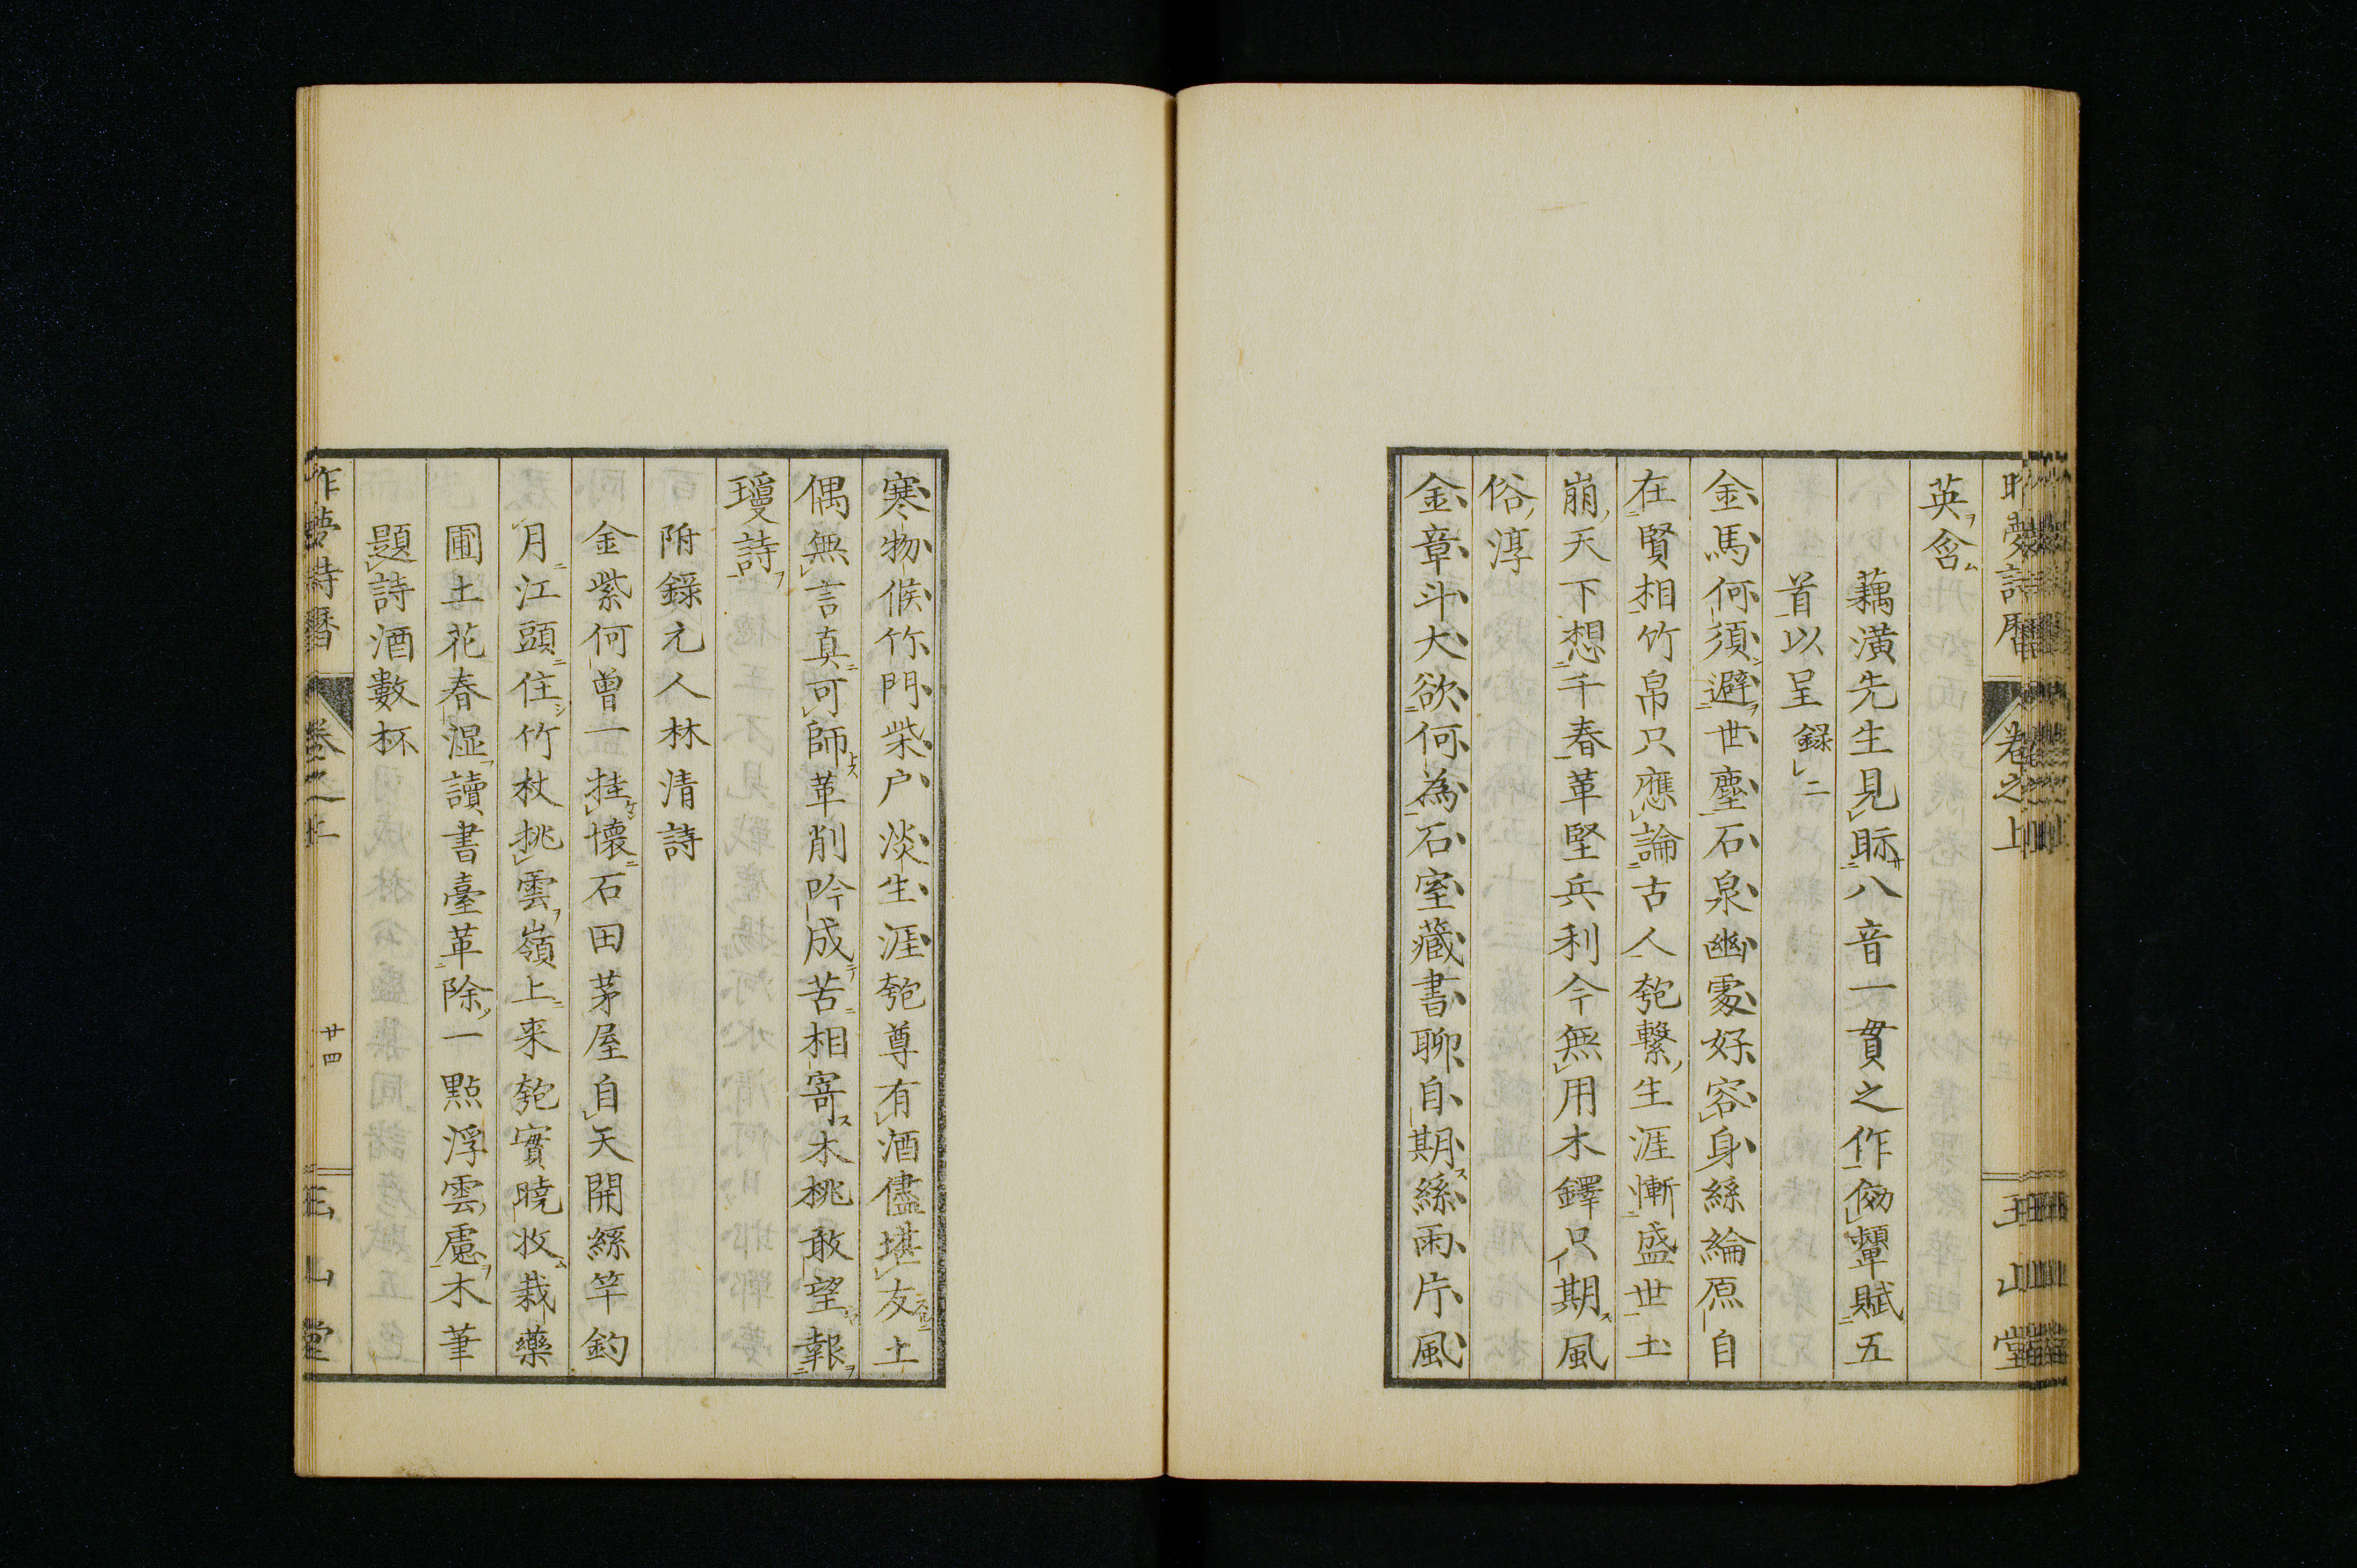 昨夢詩曆 卷之上 玉山堂
英含
藕潢先生見眎八音一貫之作俲顰賦五
首以呈 録二
金馬何須避世塵石泉幽處好容身絲綸原自
在賢相竹帛只應論古人匏繫生涯慚盛世土
崩天下想千春革堅兵利今無用木鐸只期風
俗淳
金章斗大欲何為石室藏書聊自期絲雨片風
寒物候竹門柴户淡生涯匏尊有酒儘堪友土
偶無言真可師革削吟成苦相寄木桃敢望報
瓊詩
附錄元人林清詩
金紫何曾一挂懷石田茅屋自天開絲竿釣
月江頭住竹杖挑雲嶺上来匏實曉收栽藥
圃土花春湿讀書臺革除一點浮雲慮木筆
題詩酒數杯
昨夢詩曆 卷之上 廿四 玉山堂